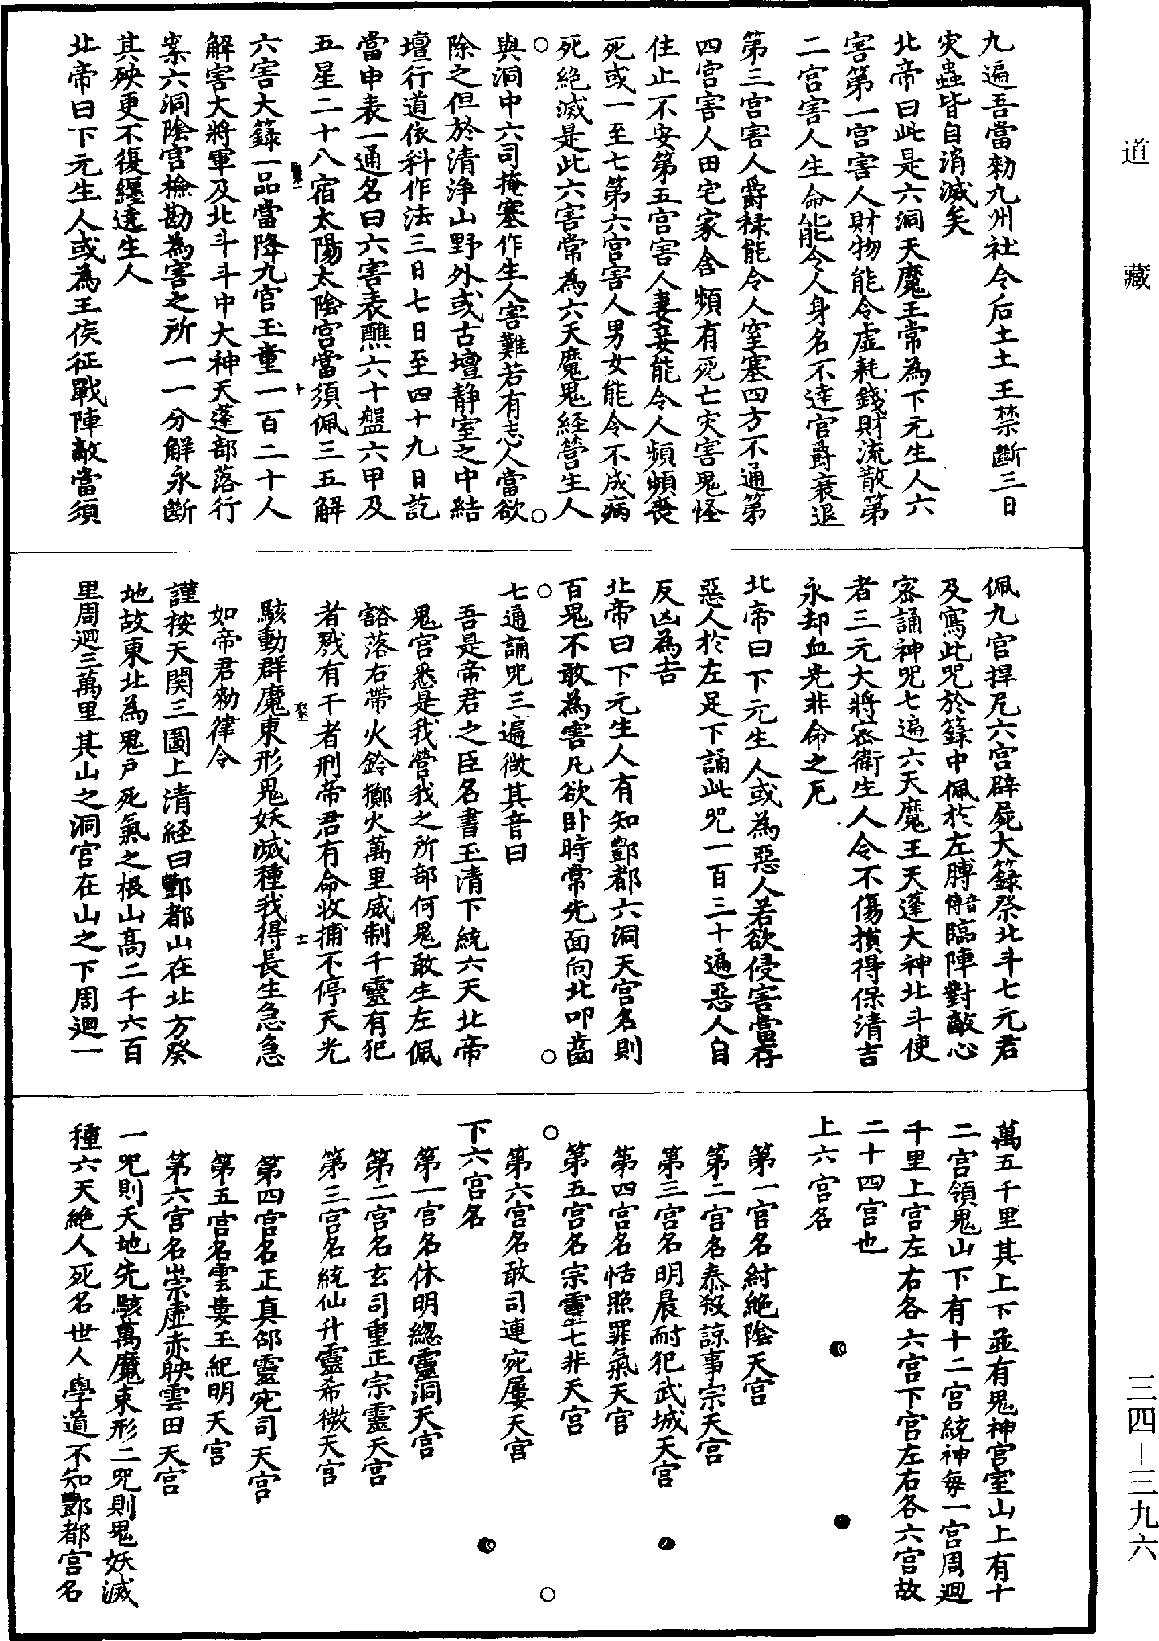 道藏
九遍吾當勑九州社令后土土王禁斷三日
灾蟲皆自消滅矣
北帝曰此是六洞天魔王常為下元生人六
害第一宮害人財物能令虛耗錢財流散第
二宮害人生命能令人身名不達官爵衰退
第三宮害人爵祿能令人窒塞四方不通第
四宮害人田宅家舍頻有死亡灾害鬼怪
住止不安第五宮害人妻妾能令人頻頻喪
死或一至七第六宮害人男女能令不成病
死絕滅是此六害常為六天魔鬼経營生人
與洞中六司掩塞作生人害難若有志人當欲
除之但於清淨山野外或古壇静室之中結
壇行道依科作法三日七日至四十九日訖
當申表一通名曰六害表醮六十盤六甲及
五星二十八宿太陽太陰宮當須佩三五解
六害大籙一品當降九官玉童一百二十人
解害大將軍及北斗斗中大神天蓬部落行
業六洞陰宮撿勘為害之所一一分解永斷
其殃更不復纏遶生人
北帝曰下元生人或為王侯征戰陣敵當須
佩九宮捍厄六宮辟屍大籙祭北斗七元君
及寫此咒於籙中佩於左膊(音)臨陣對敵心
密誦神咒七遍六天魔王天蓬大神北斗使
者三元大將密衛生人令不傷損得保清吉
永却血光非命之厄
北帝曰下元生人或為惡人若欲侵害當存
惡人於左足下誦此咒一百三十遍惡人自
反凶為吉
北帝曰下元生人有知酆都六洞天宮名則
百鬼不敢為害凡欲卧時常先面向北叩齒
七通誦咒三遍微其音曰
吾是帝君之臣名書玉清下統六天北帝
鬼官悉是我營我之所部何鬼敢生左佩
豁落右帶火鈴擲火萬里威制千靈有犯
者戮有干者刑帝君有命收捕不停天光
駭動群魔束形鬼妖滅種我得長生急急
如帝君勑律令
謹按天関三圖上清経曰酆都山在北方癸
地故東北為鬼戶死氣之根山高二千六百
里周迴三萬里其山之洞宮在山之下周迴一
萬五千里其上下並有鬼神宮室山上有十
二宮領鬼山下有十二宮統神每一宮周迴
千里上宮左右各六宮下宮左右各六宮故
二十四宮也
上六宮名
第一宮名紂絕陰天宮
第二宮名泰殺諒事宗天宮
第三宮名明晨耐犯武城天宮
第四宮名恬照罪氣天宮
第五宮名宗靈七非天宮
第六宮名敢司連宛屢天宮
下六宮名
第一宮名休明緫靈洞天宮
第二宮名玄司重正宗靈天宮
第三宮名統仙升靈希微天宮
第四宮名正真郃靈宛司天宮
第五宮名雲婁玉紀明天宮
第六宮名崇虛赤映雲田天宮
一咒則天地先駭萬魔束形二咒則鬼妖滅
種六天絕人死名世人學道不知酆都宮名
三四－三九六